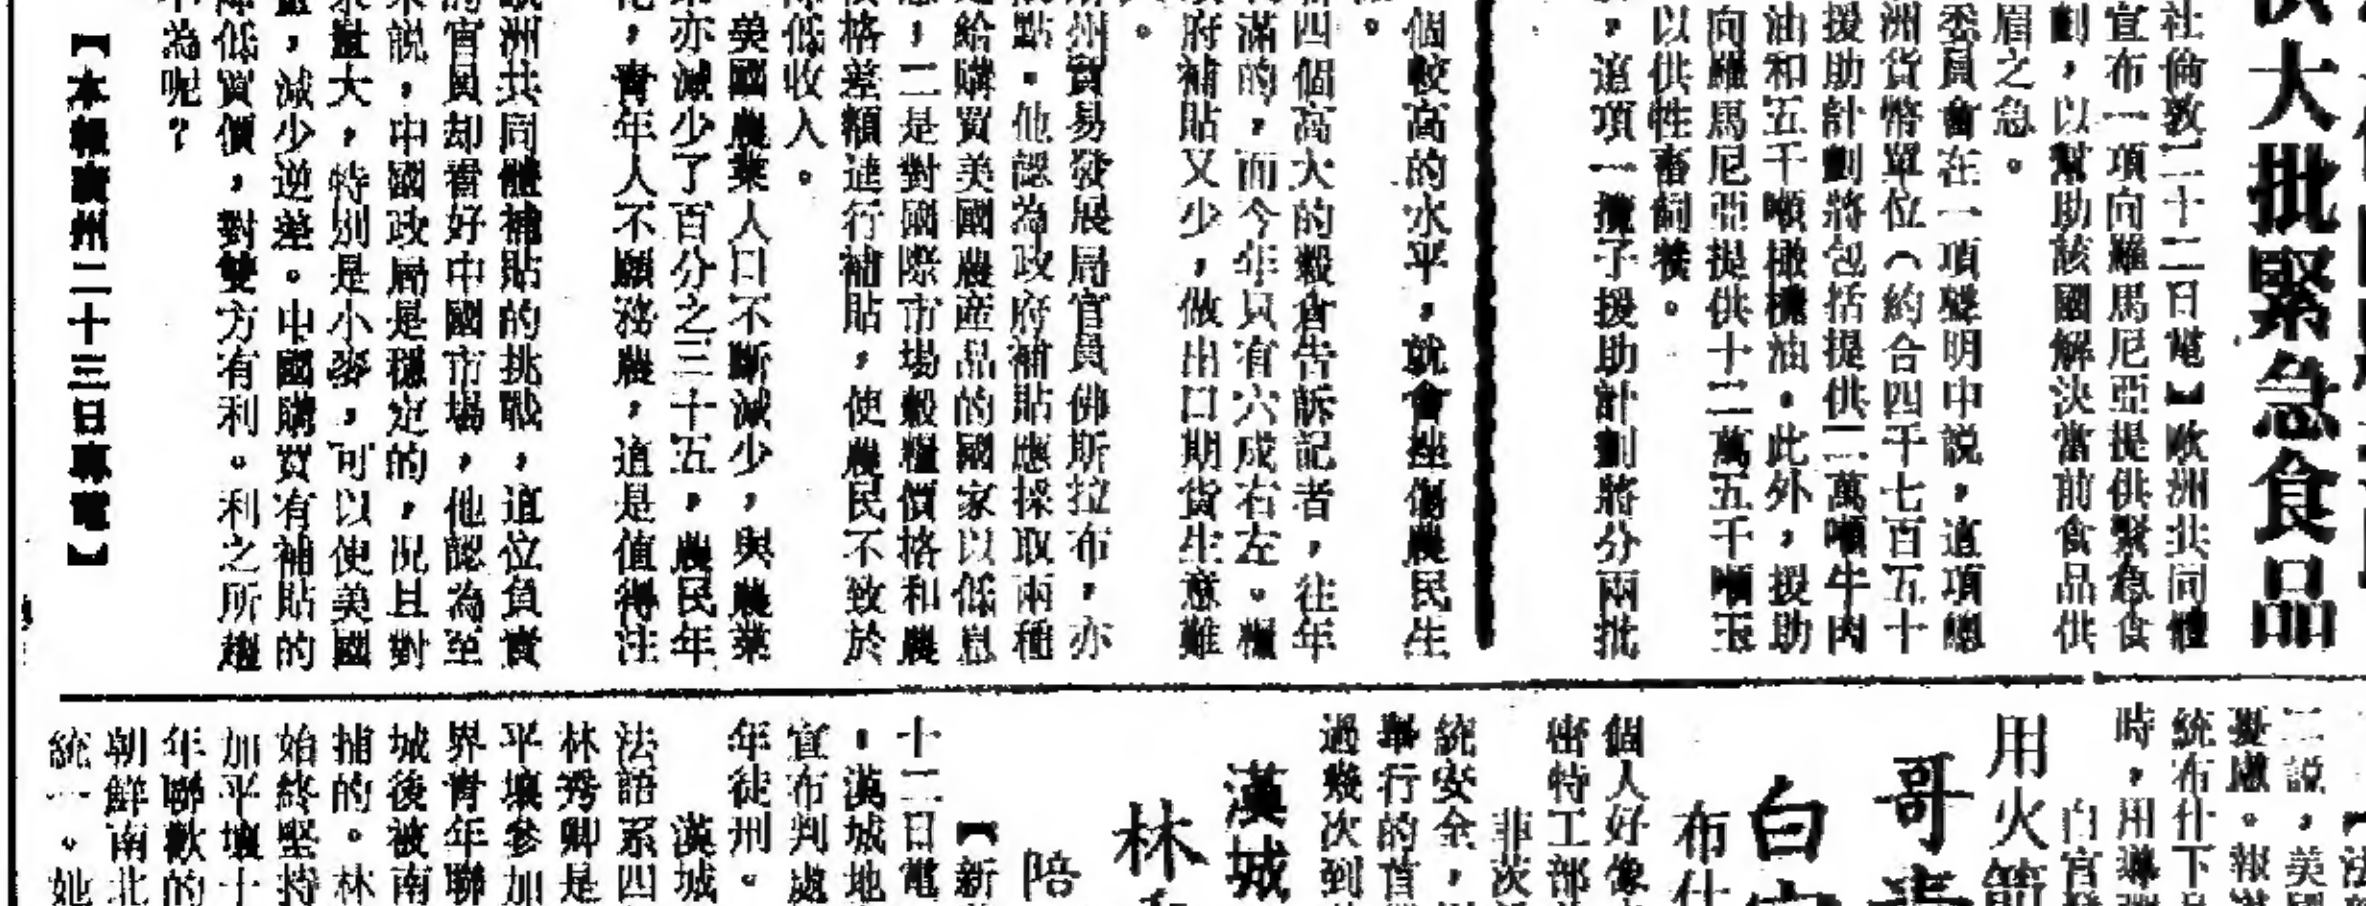 供大批緊急食品
社倫敦二十二日電】歐洲共同體
宣布一項向羅馬尼亞提供緊急食
劃，以幫助該國解決當前食品供
眉之急。
委員會在一項聲明中説，這項總
洲貨幣單位（約合四千七百五十
援助計劃將包括提供二萬噸牛肉
油和五千噸橄欖油。此外，援助
向羅馬尼亞提供十二萬五千噸玉
以供牲畜飼養。
，這項一攬子援助計劃將分兩批
個較高的水平，就會挫傷農民生
。
四個高大的穀倉告訴記者，往年
滿的，而今年只有六成右左。糧
府補貼又少，做出口期貨生意難
。
州貿易發展局官員佛斯拉布，亦
點。他認為政府補貼應採取兩種
給購買美國農産品的國家以低息
，二是對國際市場穀糧價格和農
格差額進行補貼，使農民不致於
低收入。
美國農業人口不斷減少，與農業
亦減少了百分之三十五，農民年
，青年人不願務農，這是值得注
洲共同體補貼的挑戰，這位負責
官員却看好中國市場，他認為至
説，中國政局是穩定的，況且對
量大，特別是小麥，可以使美國
，減少逆差。中國購買有補貼的
低買價，對雙方有利。利之所趨
為呢？
【本報廣州二十三日專電】
二説，美國
擬慮。報
統布什下
時，用導彈
白宮發
用火箭
哥
白宮
布什
個人好像
密特工部
菲茨
統安全，
舉行的首
過幾次到
漢城
林
陪
【新
十二日電
。漢城地
宣布判處
年徒刑。
漢城
法語系四
林秀卿是
平壤參加
界青年聯
城後被南
捕的。林
始終堅持
加平壤十
年聯歡的
朝鮮南北
統一。她